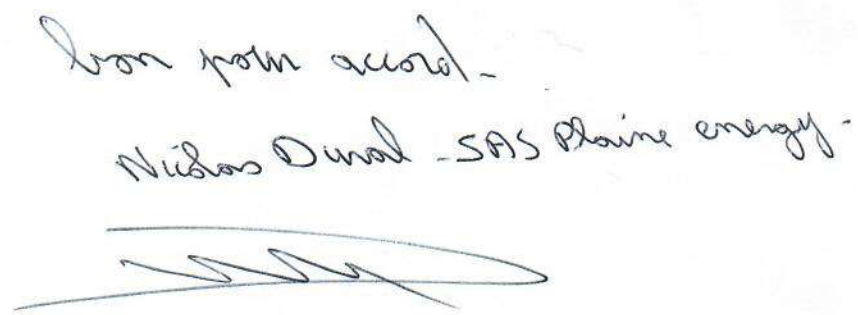 bon pour accord -
Nicolas Duval - SAS Plaine energy.